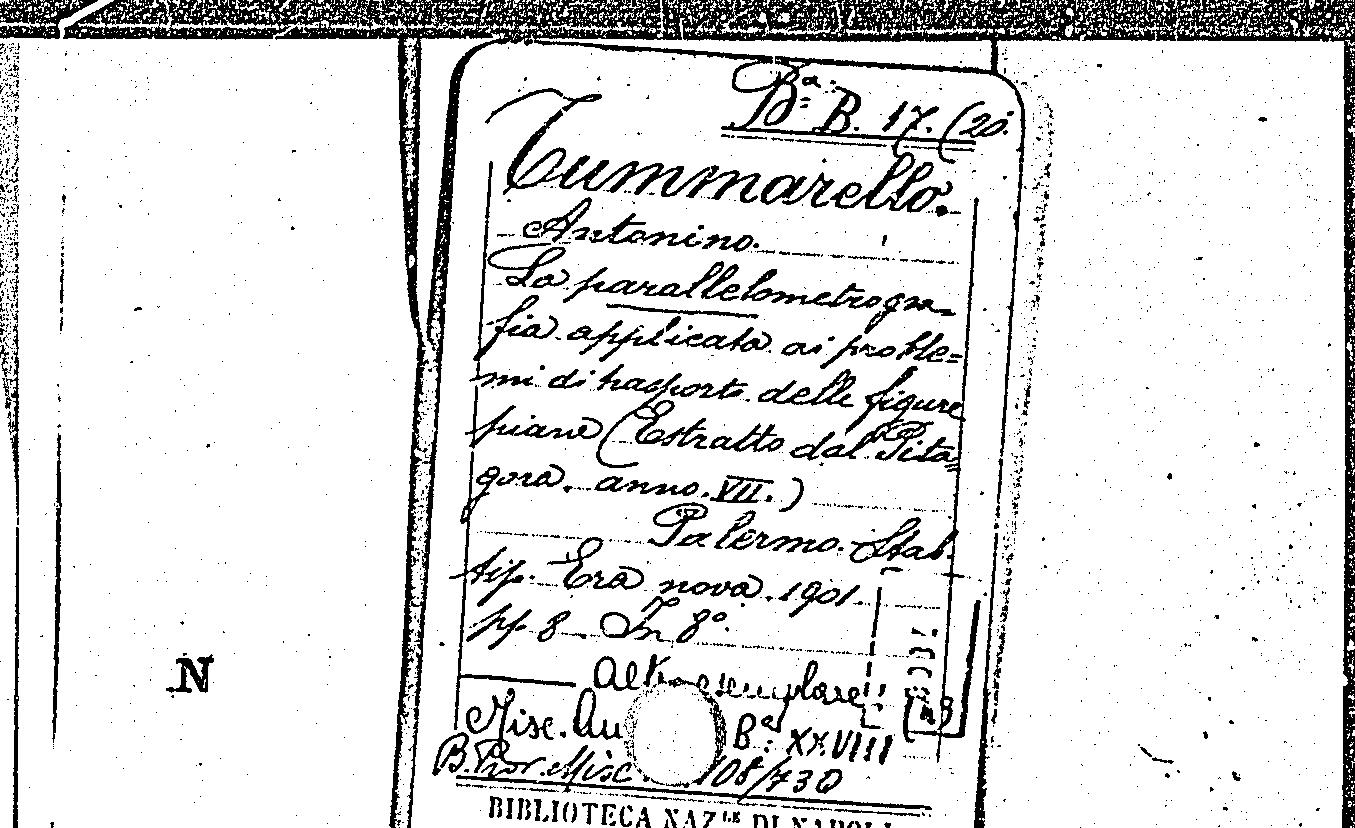 Bª B. 17. (20.
Tummarello.
Antonino.
La parallelometrogra-
fia applicata ai proble=
mi di trasporto delle figure
piane (Estratto dal Pita=
gora. anno. VII.)
Palermo. Stab.
tip. Era nova. 1901
pp. 8 In 8º.
Altro esemplare
Misc. Au Bª: XXVIII
B. Prov. Misc 108/730
N
BIBLIOTECA NAZ.LE DI NAPOLI